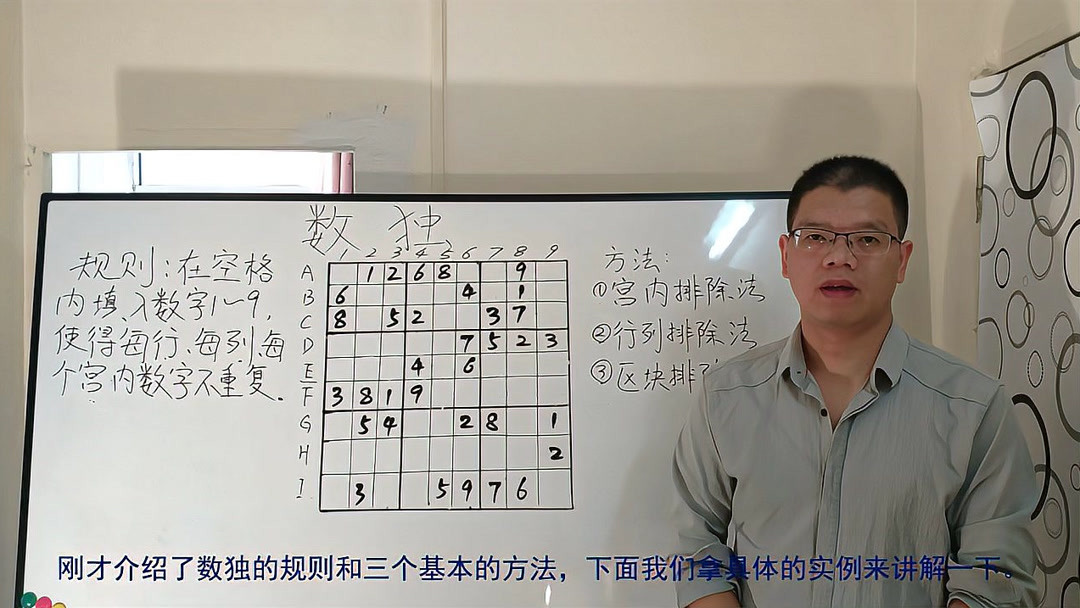 数 独
规则:在空格
内填入数字1~9,
使得每行、每列、每
个宫内数字不重复.
1 2 3 4 5 6 7 8 9
A 1 2 6 8 9
B 6 4 1
C 8 5 2 3 7
D 7 5 2 3
E 4 6
F 3 8 1 9
G 5 4 2 8 1
H 2
I 3 5 9 7 6
方法:
①宫内排除法
②行列排除法
③区块排
刚才介绍了数独的规则和三个基本的方法，下面我们拿具体的实例来讲解一下。